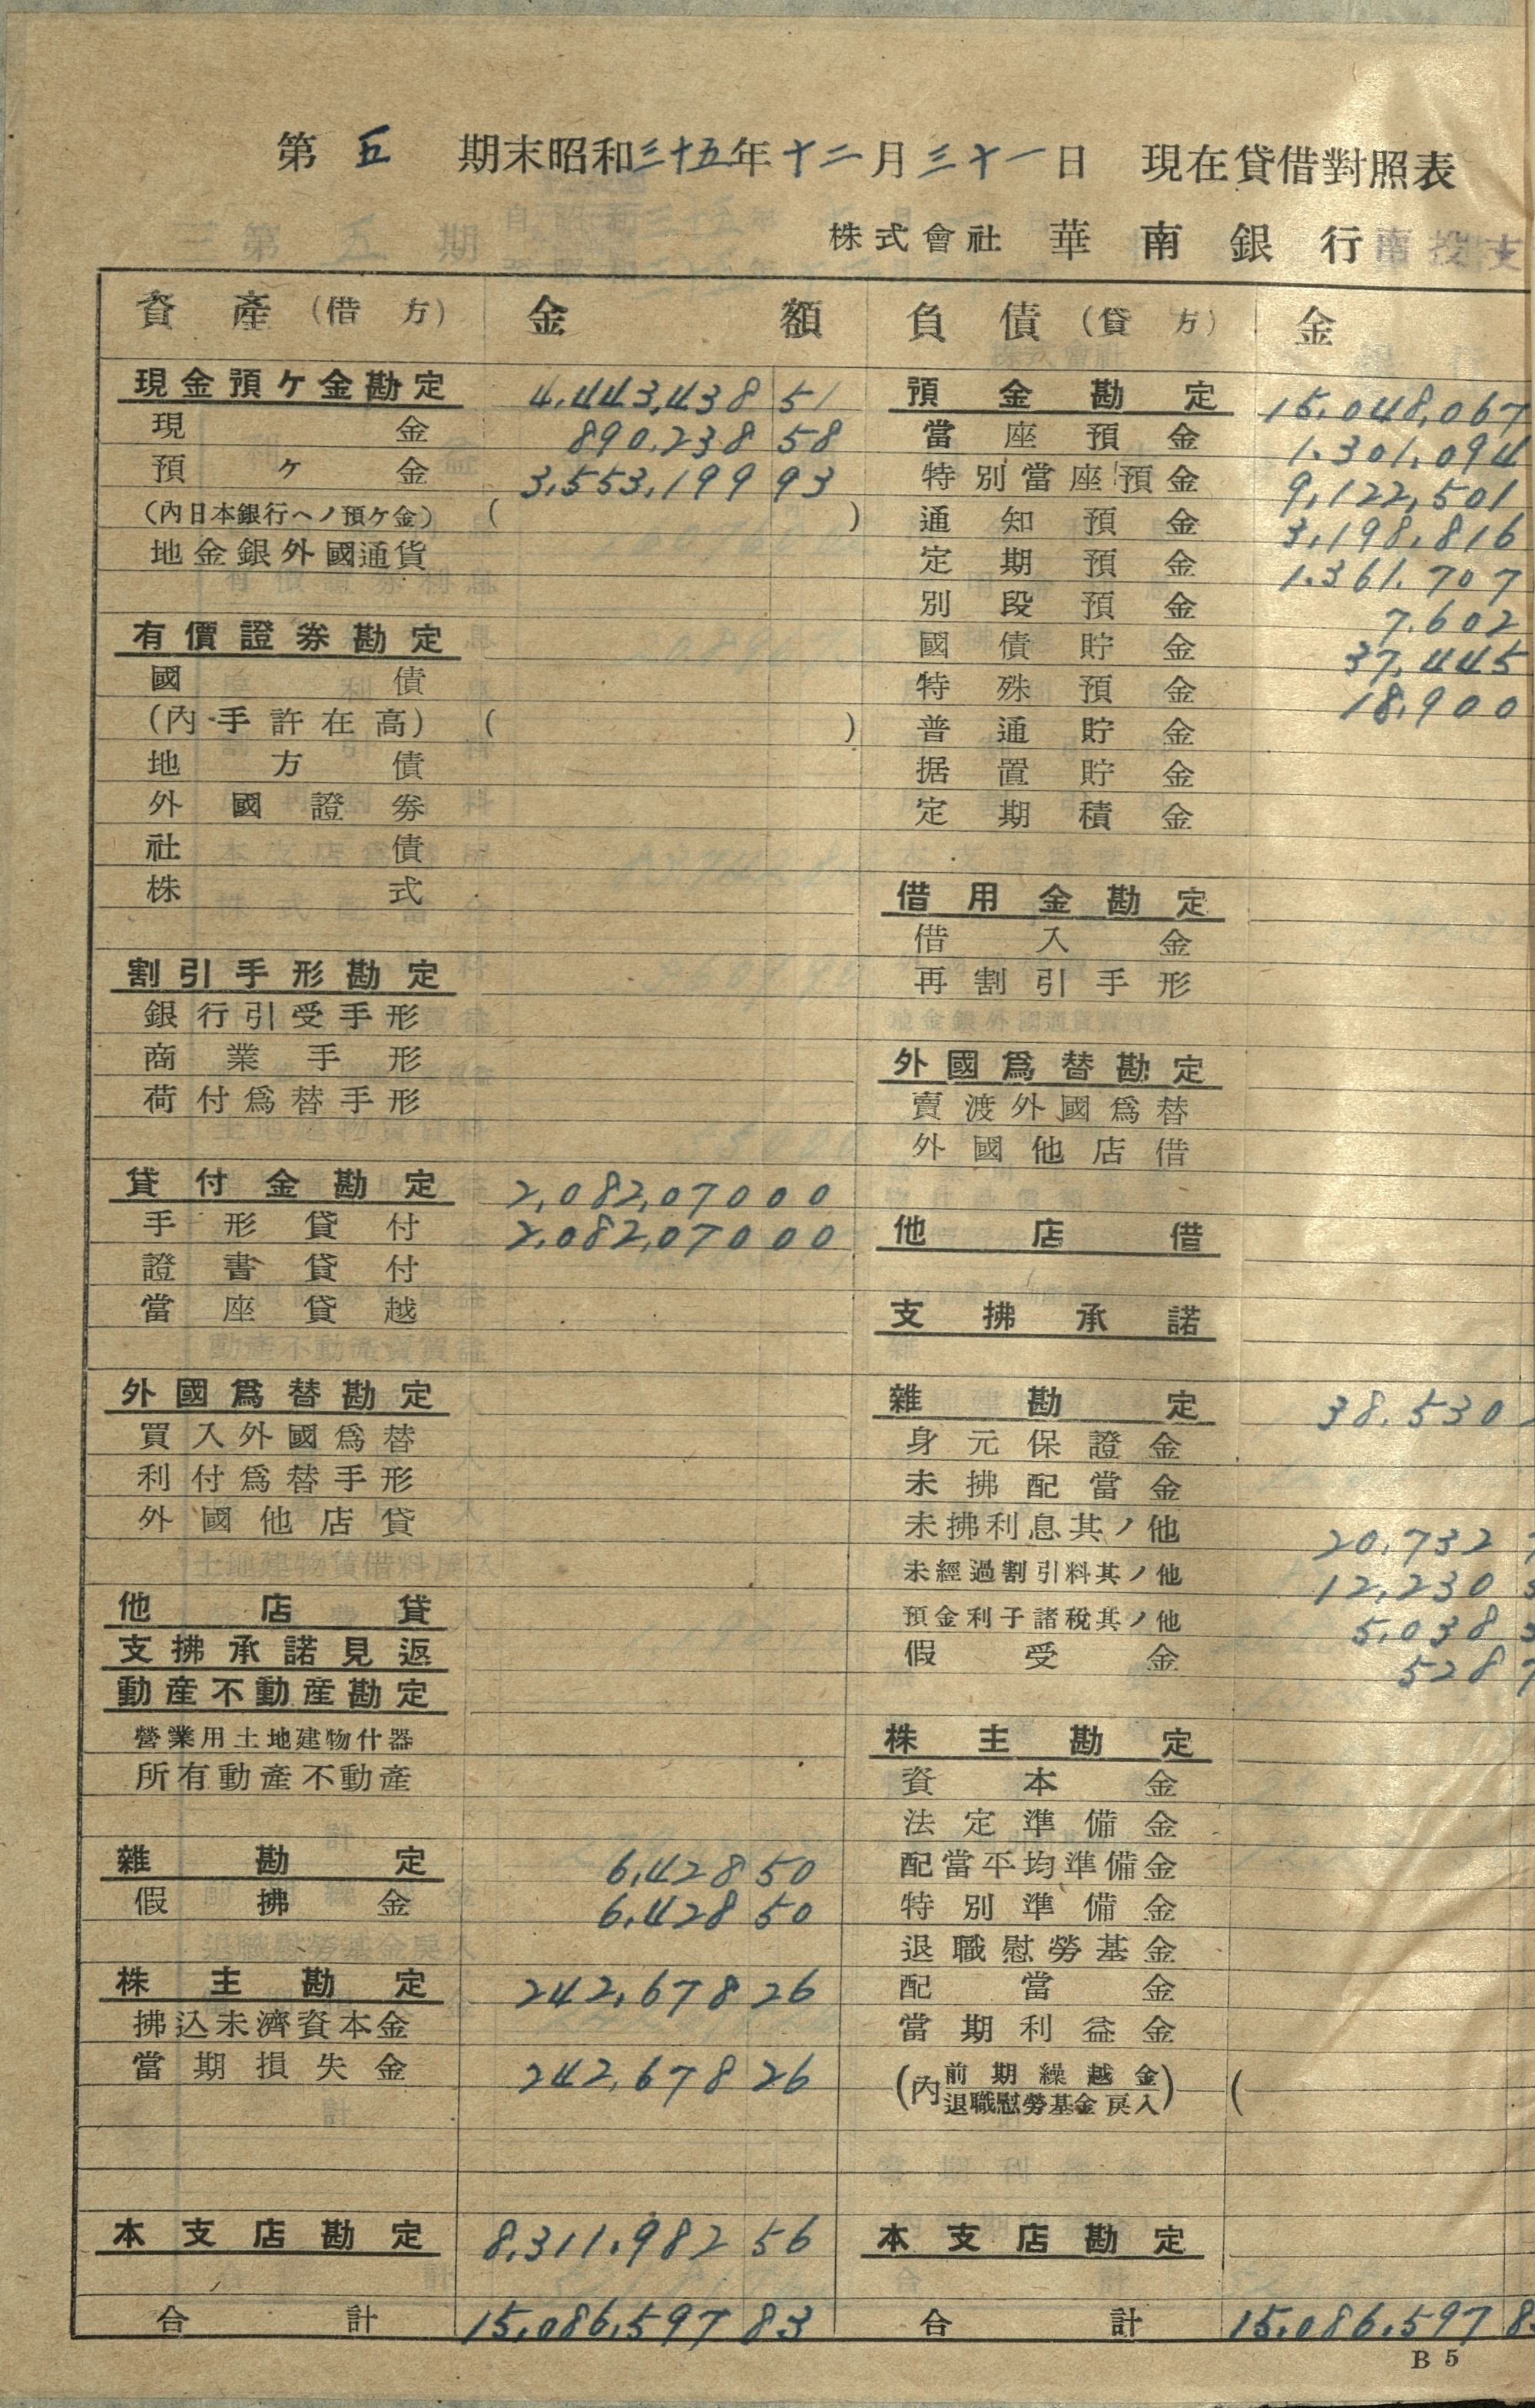 第 五 期末昭和三十五年十二月三十一日 現在貸借對照表
株式會社 華南銀行 南投支
資產(借方) 金額 負債(貸方) 金
現金預ケ金勘定 4,443,438 51 預金勘定 15,048,067
現金 890,238 58 當座預金 1,301,094
預ケ金 3,553,199 93 特別當座預金 9,122,501
(內日本銀行ヘノ預ケ金) ( ) 通知預金 3,198,816
地金銀外國通貨 定期預金 1,361,707
別段預金 7,602
有價證券勘定 國債貯金 37,445
國債 特殊預金 18,900
(內手許在高) ( ) 普通貯金
地方債 据置貯金
外國證券 定期積金
社債
株式 借用金勘定
借入金
割引手形勘定 再割引手形
銀行引受手形
商業手形 外國爲替勘定
荷付爲替手形 賣渡外國爲替
外國他店借
貸付金勘定 2,082,070 00
手形貸付 2,082,070 00 他店借
證書貸付
當座貸越 支拂承諾
外國爲替勘定 雜勘定 38,530
買入外國爲替 身元保證金
利付爲替手形 未拂配當金
外國他店貸 未拂利息其ノ他 20,732 7
未經過割引料其ノ他 12,230
他店貸 預金利子諸稅其ノ他 5,038
支拂承諾見返 假受金 528 7
動產不動產勘定
營業用土地建物什器 株主勘定
所有動產不動產 資本金
法定準備金
雜勘定 6,428 50 配當平均準備金
假拂金 6,428 50 特別準備金
退職慰勞基金
株主勘定 242,678 26 配當金
拂込未濟資本金 當期利益金
當期損失金 242,678 26 (內 前期繰越金 退職慰勞基金戾入) (
本支店勘定 8,311,982 56 本支店勘定
合計 15,086,597 83 合計 15,086,597 8
B 5